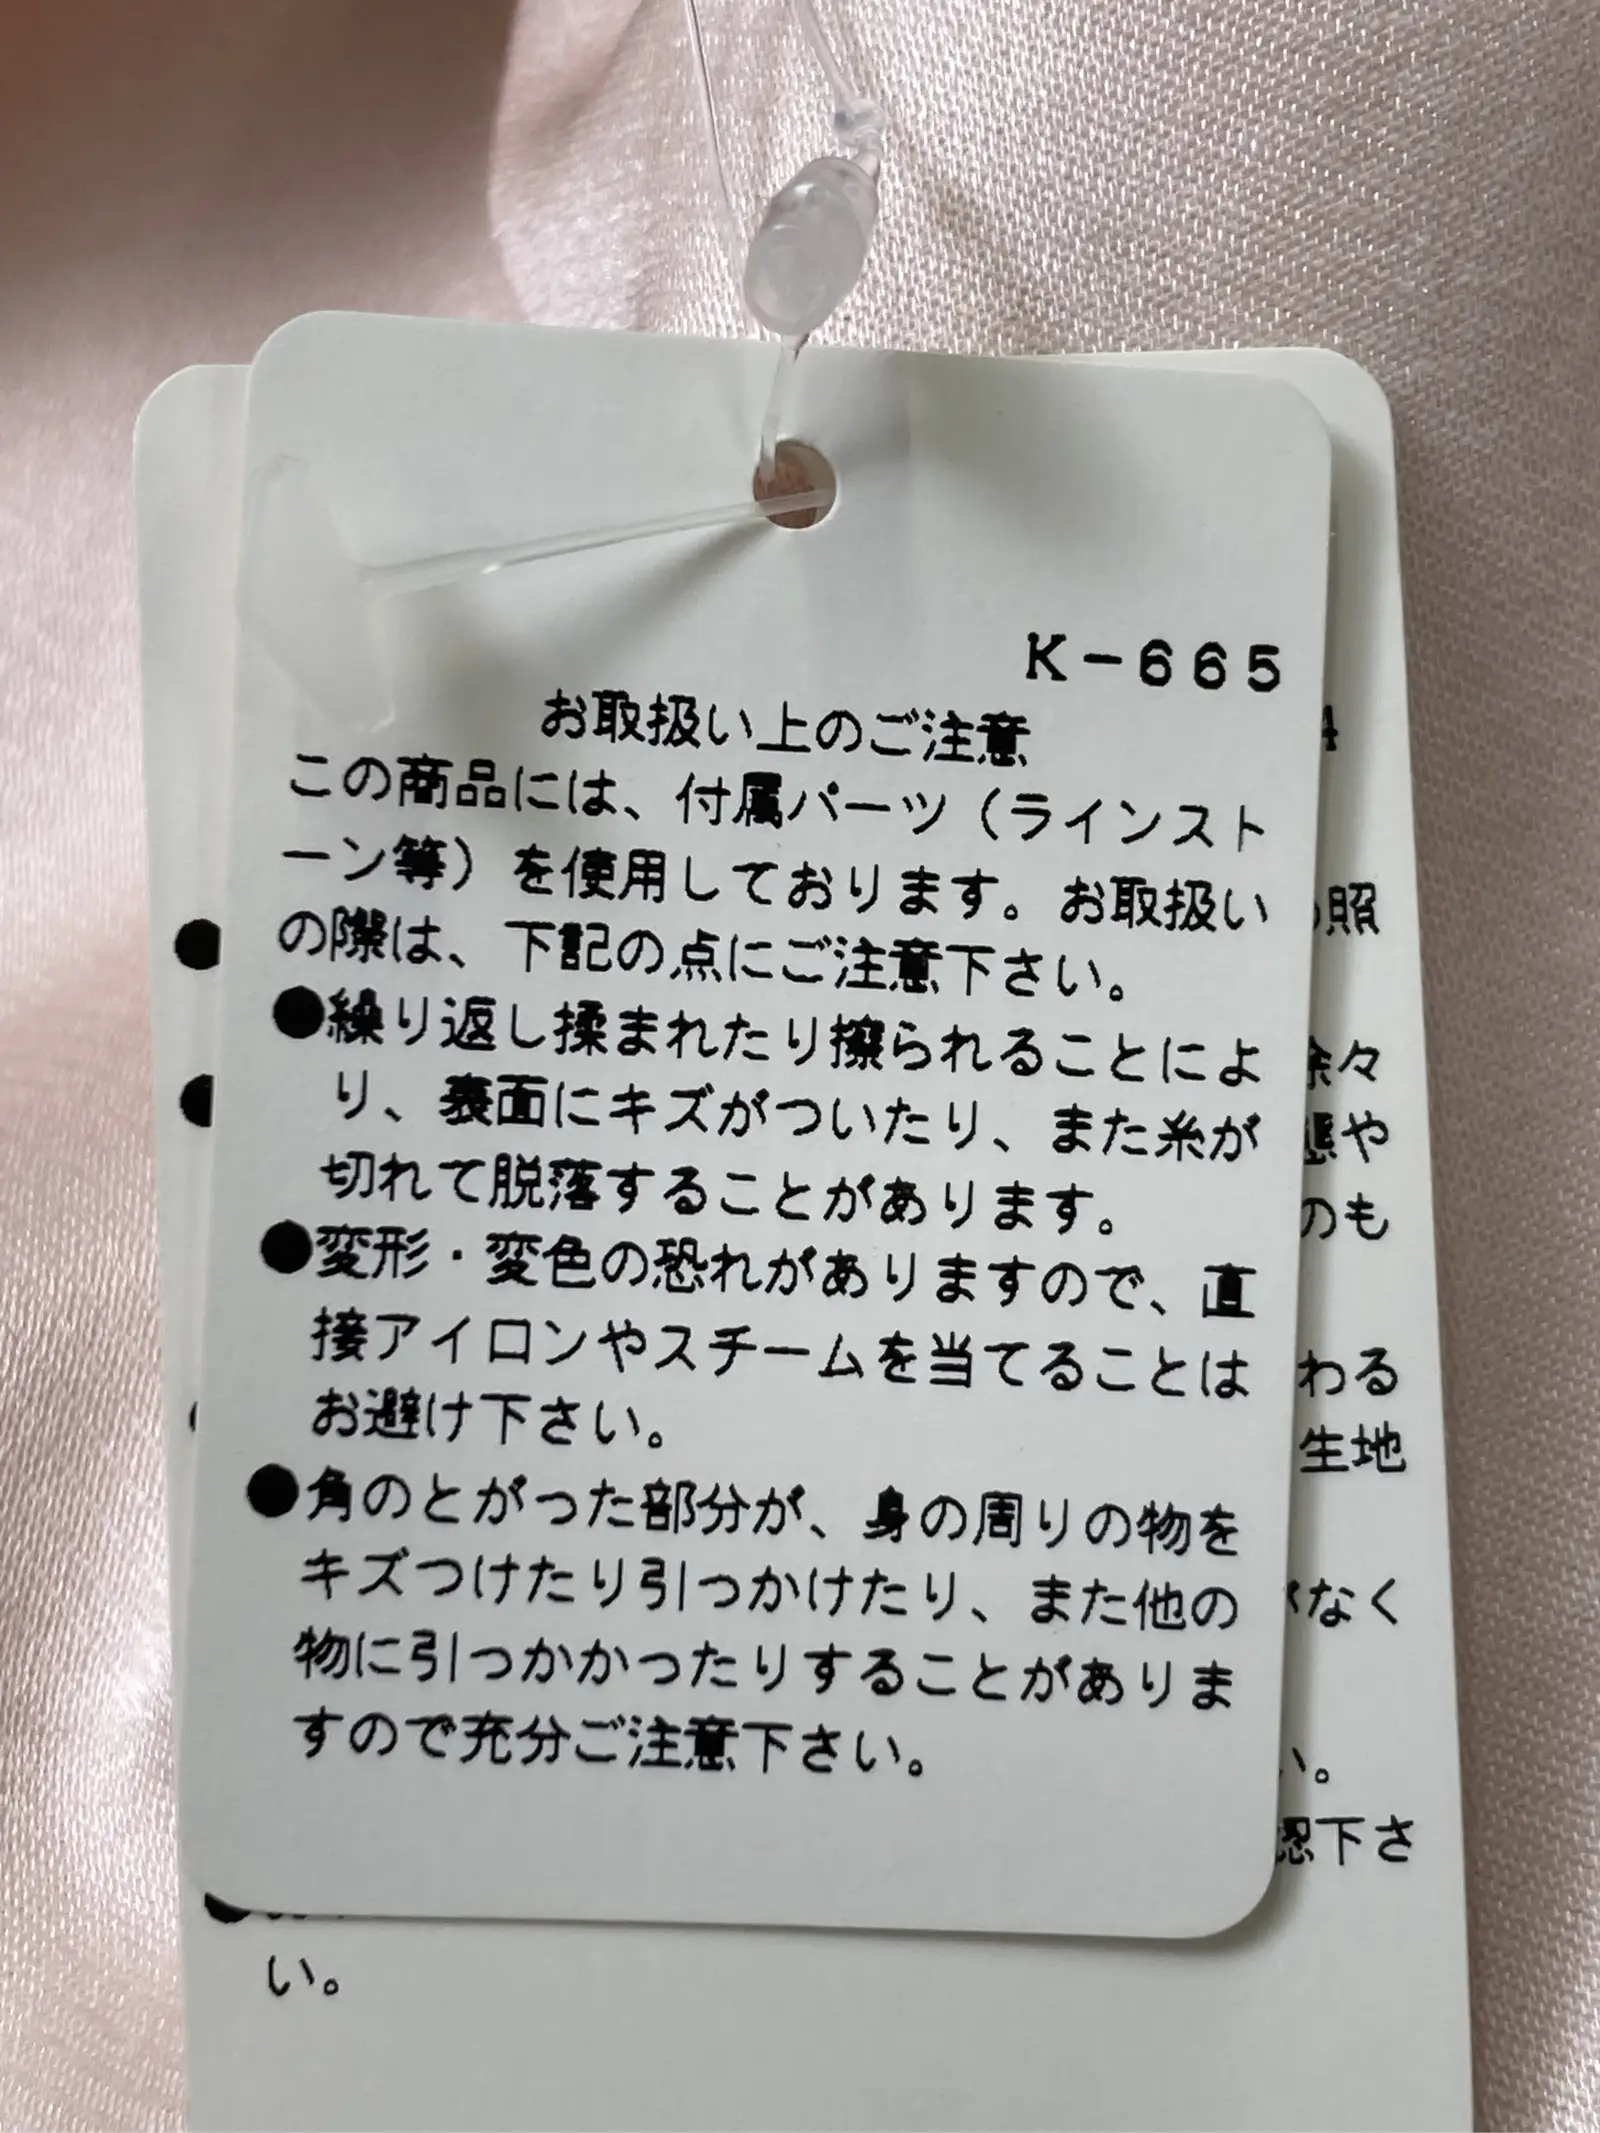 K-665
お取扱い上のご注意
この商品には、付属パーツ（ラインスト
ーン等）を使用しております。お取扱い
の際は、下記の点にご注意下さい。
●繰り返し揉まれたり擦られることによ
り、表面にキズがついたり、また糸が
切れて脱落することがあります。
●変形・変色の恐れがありますので、直
接アイロンやスチームを当てることは
お避け下さい。
●角のとがった部分が、身の周りの物を
キズつけたり引っかけたり、また他の
物に引っかかったりすることがありま
すので充分ご注意下さい。
4
照
々
や
のも
わる
生地
なく
い。
認下さ
い。